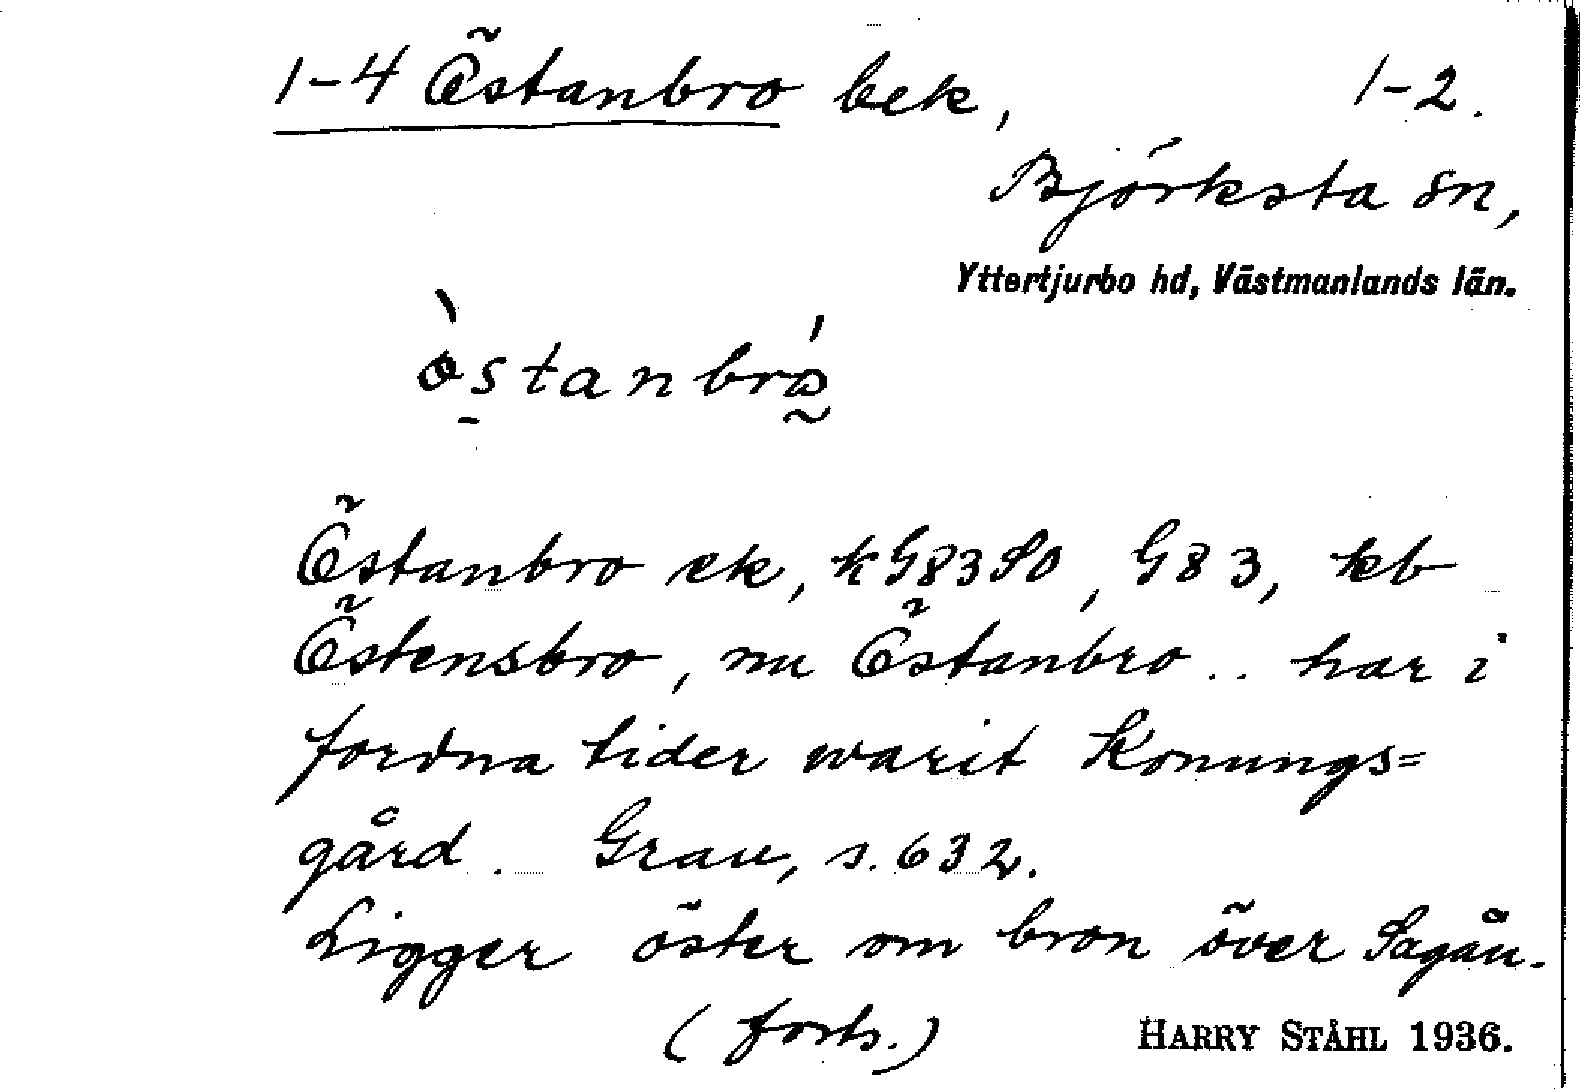 1-4 Östanbro bek, 1-2.
Björksta sn,
Yttertjurbo hd, Västmanlands län.
Östanbro ek, kG83SO, G83, kb
Östensbro, nu Östanbro .. har i
fordna tider warit Konungs=
gård. Grau, s. 632.
Ligger öster om bron över Sagån.
(forts.) HARRY STÅHL 1936.